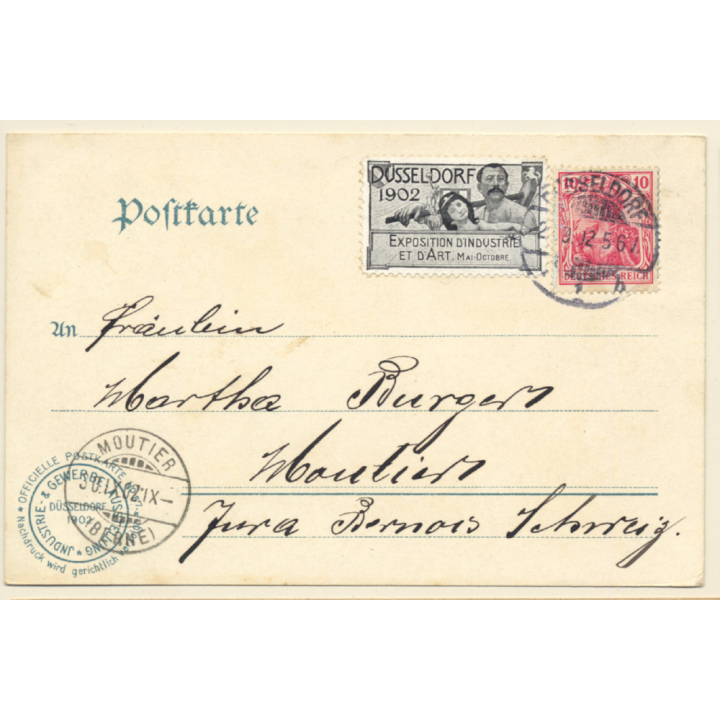 Postkarte
DÜSSELDORF
1902
EXPOSITION D'INDVSTRIE
ET D'ART. MAI-OCTOBRE
DÜSSELDORF
10
DEUTSCHES REICH
An Fräulein
Martha Burger
Moutier
Jura Bernois Schweiz.
MOUTIER
(BERNE)
* OFFICIELLE POSTKARTE
JNDUSTRIE- & GEWERBE
DÜSSELDORF
1902
* Nachdruck wird gerichtlich